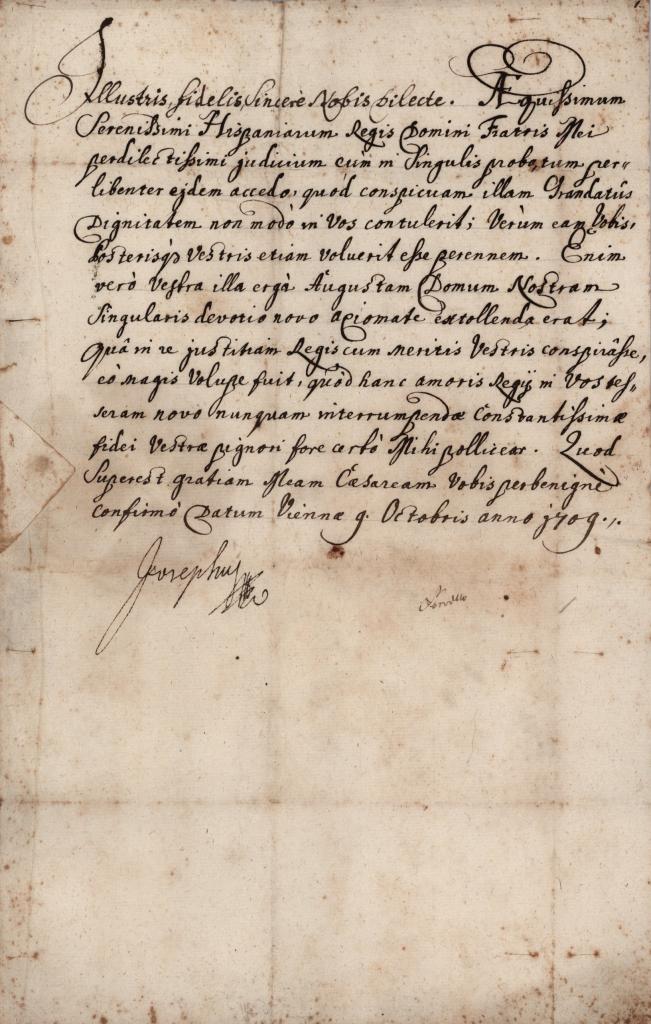 Illustris, fidelis, Sincerè Nobis dilecte. Æquissimum
Serenissimi Hispaniarum Regis Domini Fratris Mei
perdilectissimi judicium cum in Singulis probatum per-
libenter ejdem accedo, quòd conspicuam illam Grandatûs
Dignitatem non modò in Vos contulerit; Verùm eam Vobis,
Posterisq3 Vestris etiam voluerit esse perennem. Enim
verò Vestra illa ergà Augustam Domum Nostram
Singularis devotio novo axiomate extollenda erat;
quâ in re justitiam Regis cum meritis Vestris conspirâsse,
eò magis Volupe fuit, quòd hanc amoris Regij in Vos tes-
seram novo nunquam interrumpendæ Constantissimæ
fidei Vestræ pignori fore certò Mihi pollicear. Quod
Superest gratiam Meam Cæsaream Vobis perbenignè
Confirmo Datum Viennæ 9. Octobris anno 1709.
Josephus